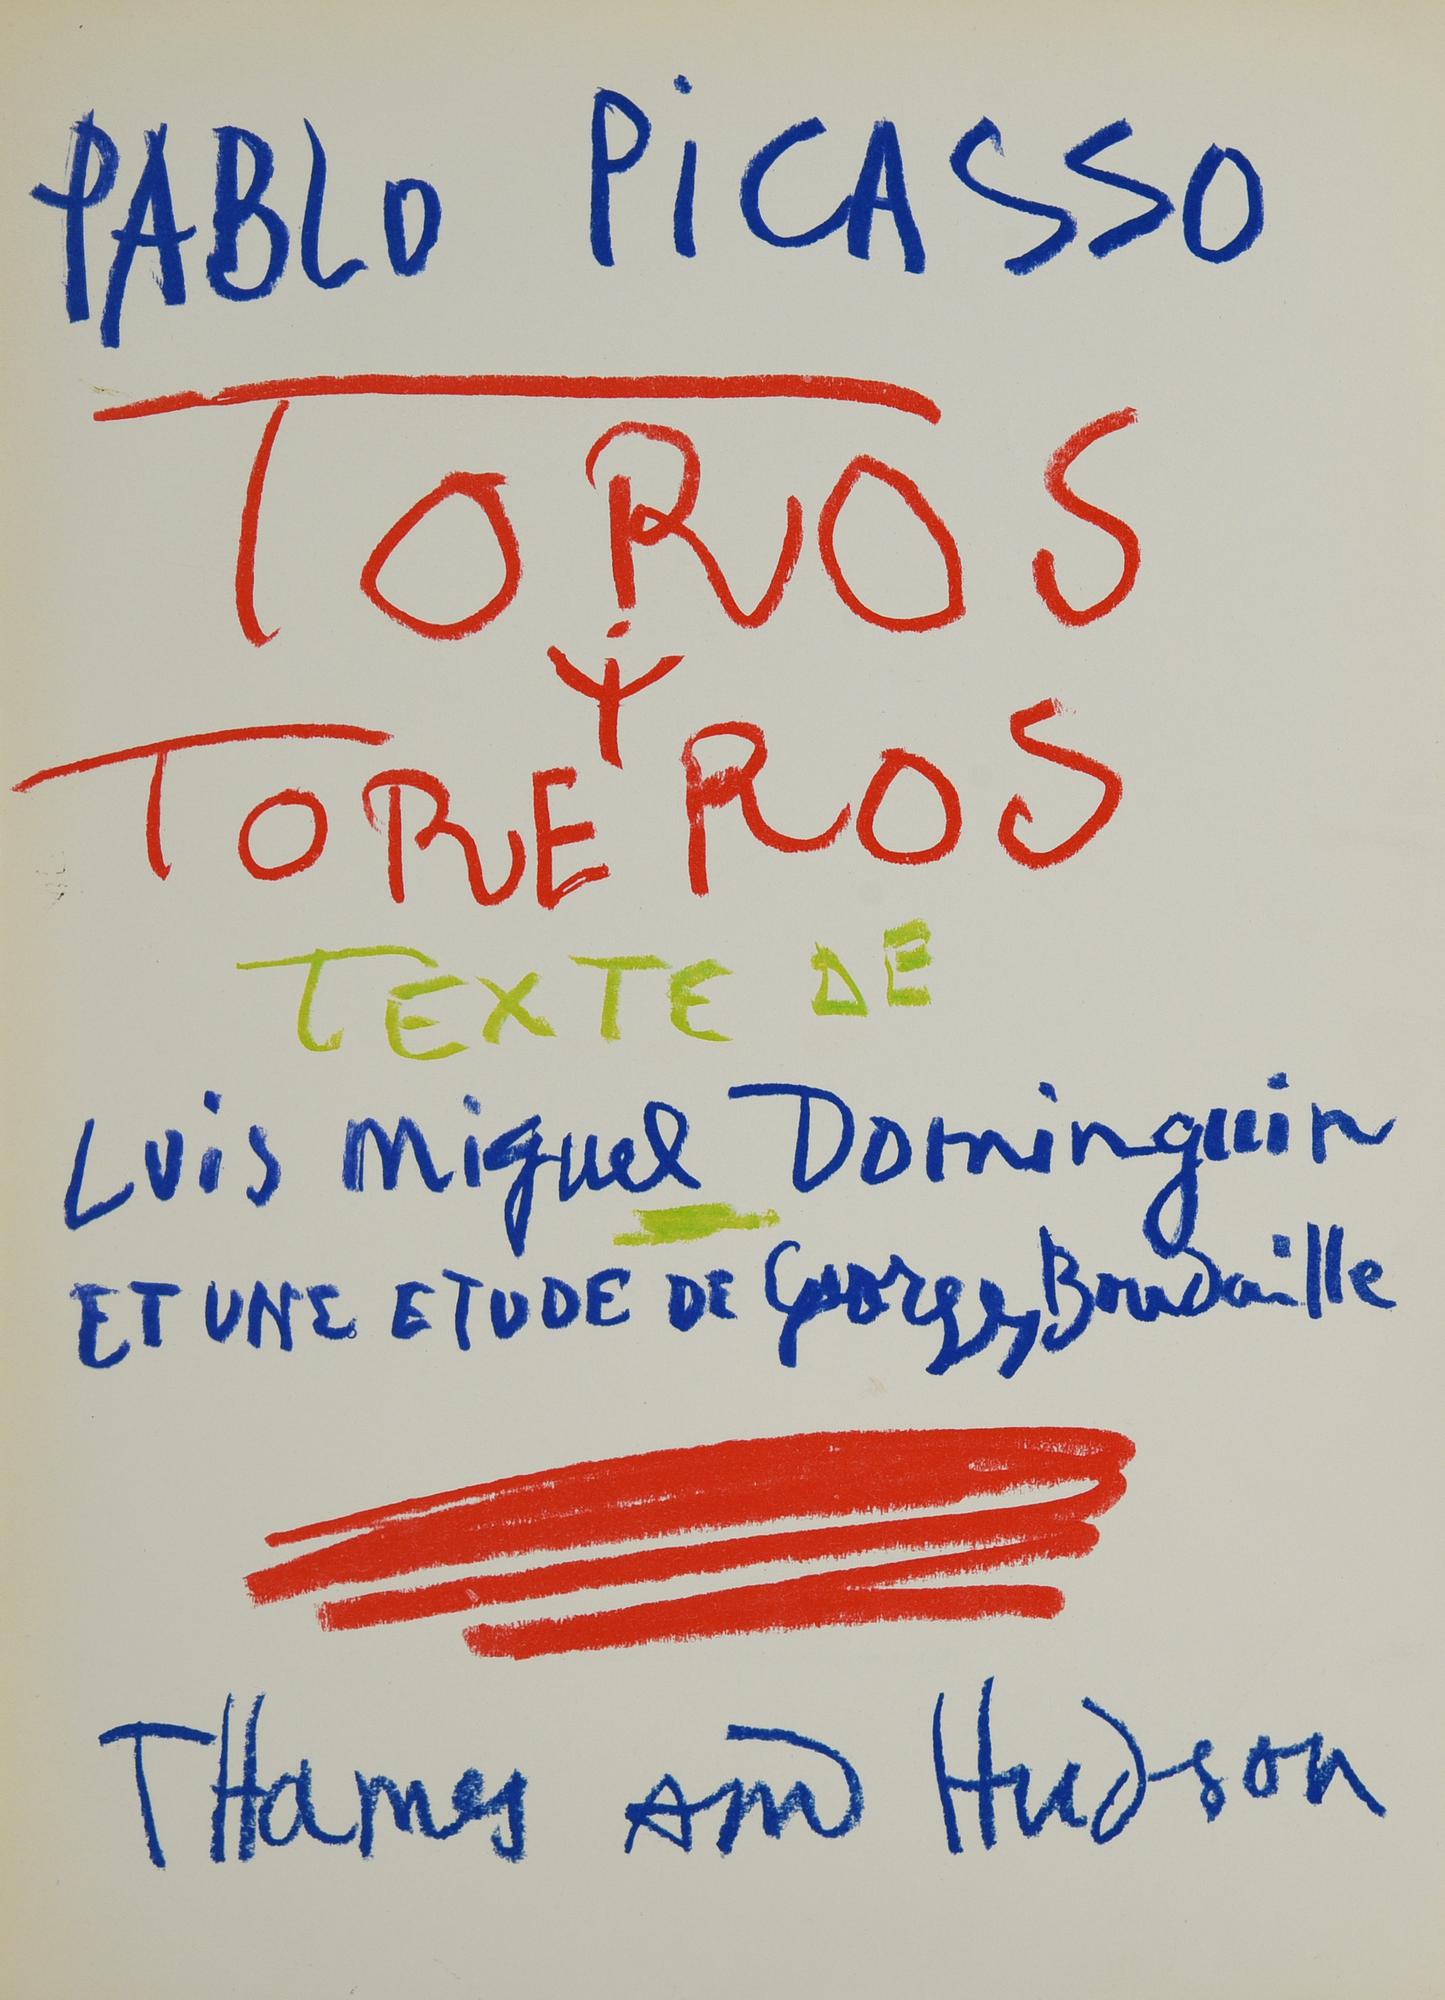 PABLO PiCASSO
TOROS
Y
TOREROS
TEXTE DE
Luis Miguel Dominguin
ET UNE ETUDE DE Georges Boudaille
THames and Hudson